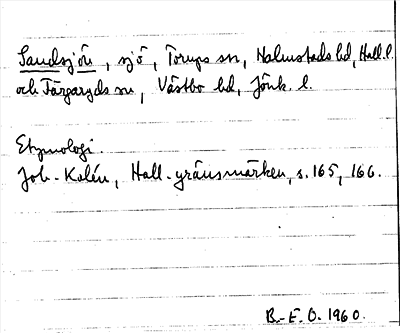 Sandsjön, sjö, Torups sn, Halmstads hd, Hall. l.
och Färgaryds sn, Västbo hd, Jönk. l.
Etymologi.
Joh. Kalén, Hall. gränsmärken, s. 165, 166.
B.-E. O. 1960.